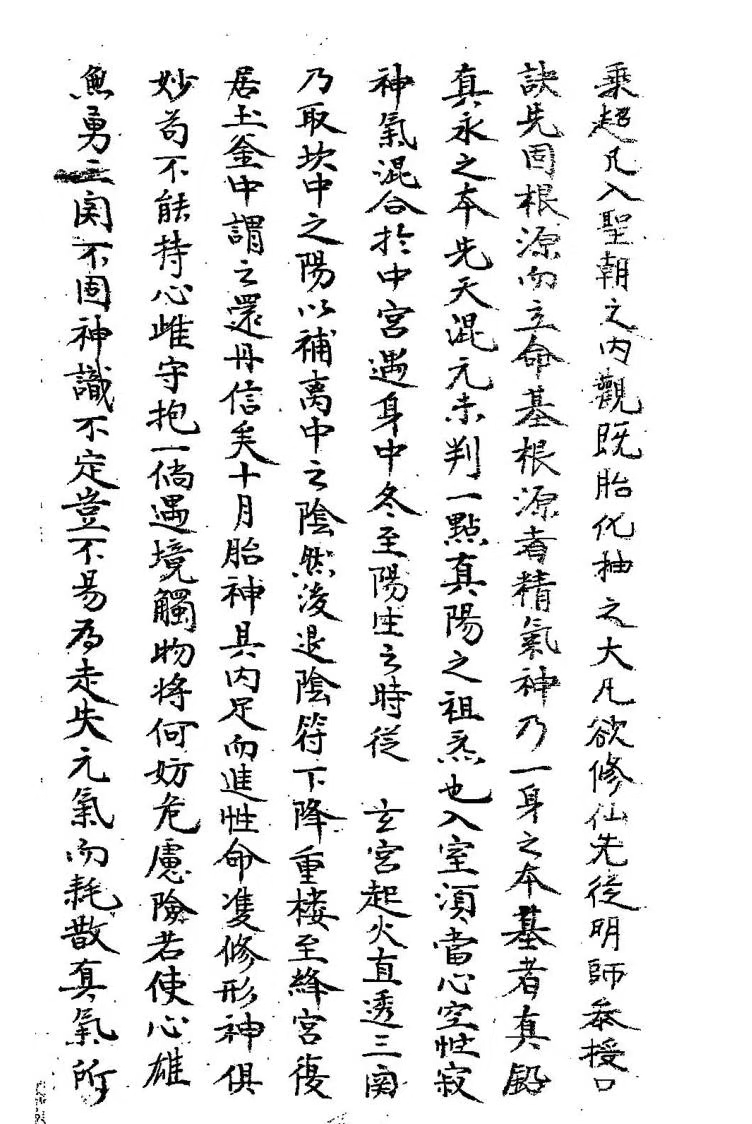 乘超凡入聖朝之内觀既胎化抽之大凡欲修仙先從明師叅授口
訣先固根源而立命基根源者精氣神乃一身之本基者真鉛
真永之本先天混元未判一點真陽之祖炁也入室湏當心空性寂
神氣混合扵中宮遇身中冬至陽生之時從　玄宮起火直透三関
乃取坎中之陽以補离中之陰然後退陰符下降重楼至絳宮復
居土釜中謂之還丹信矣十月胎神具内足而進性命双修形神俱
妙苟不能持心雌守抱一倘遇境觸物将何妨危慮險若使心雄
無勇三関不固神識不定豈不易為走失元氣而耗散真氣所